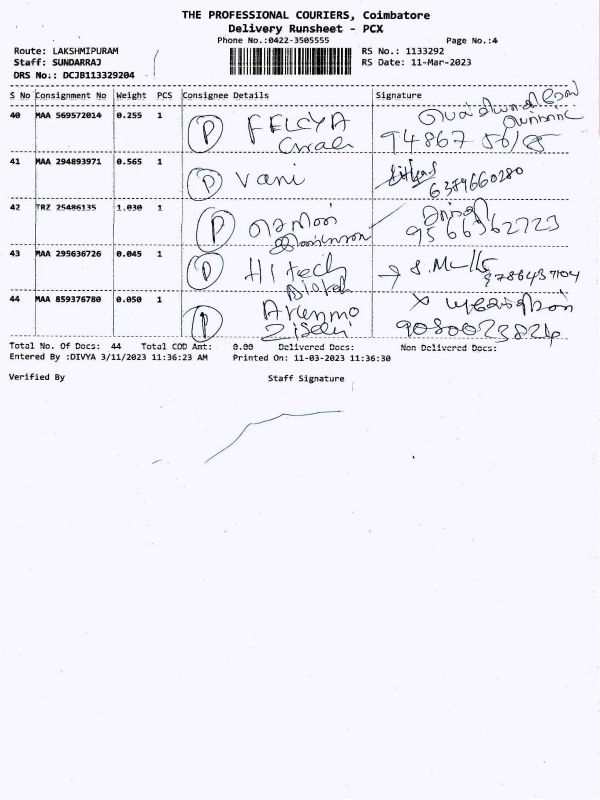 THE PROFESSIONAL COURIERS, Coimbatore
Delivery Runsheet - PCX
Phone No.:0422-3505555
Page No.:4
Route: LAKSHMIPURAM
RS No.: 1133292
Staff: SUNDARRAJ
RS Date: 11-Mar-2023
DRS No.: DCJB113329204
S No Consignment No Weight PCS Consignee Details Signature
40 MAA 569572014 0.255 1 P FELCYA
41 MAA 294893971 0.565 1 P Vani
6379660280
42 TRZ 25486135 1.030 1 P
9566362723
43 MAA 295636726 0.045 1 P HI tech
9786437104
44 MAA 859376780 0.050 1 P
Total No. Of Docs: 44 Total COD Amt: 0.00 Delivered Docs: Non Delivered Docs:
Entered By :DIVYA 3/11/2023 11:36:23 AM Printed On: 11-03-2023 11:36:30
Verified By Staff Signature